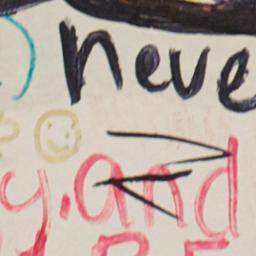 neve
y.and